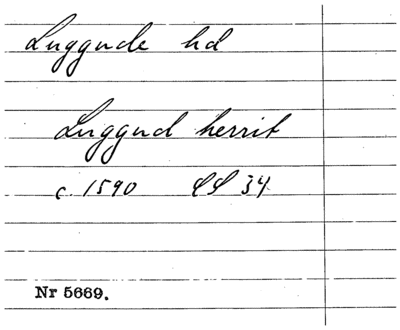 Luggude hd
Luggud herrit
c. 1590 SS 34
Nr 5669.